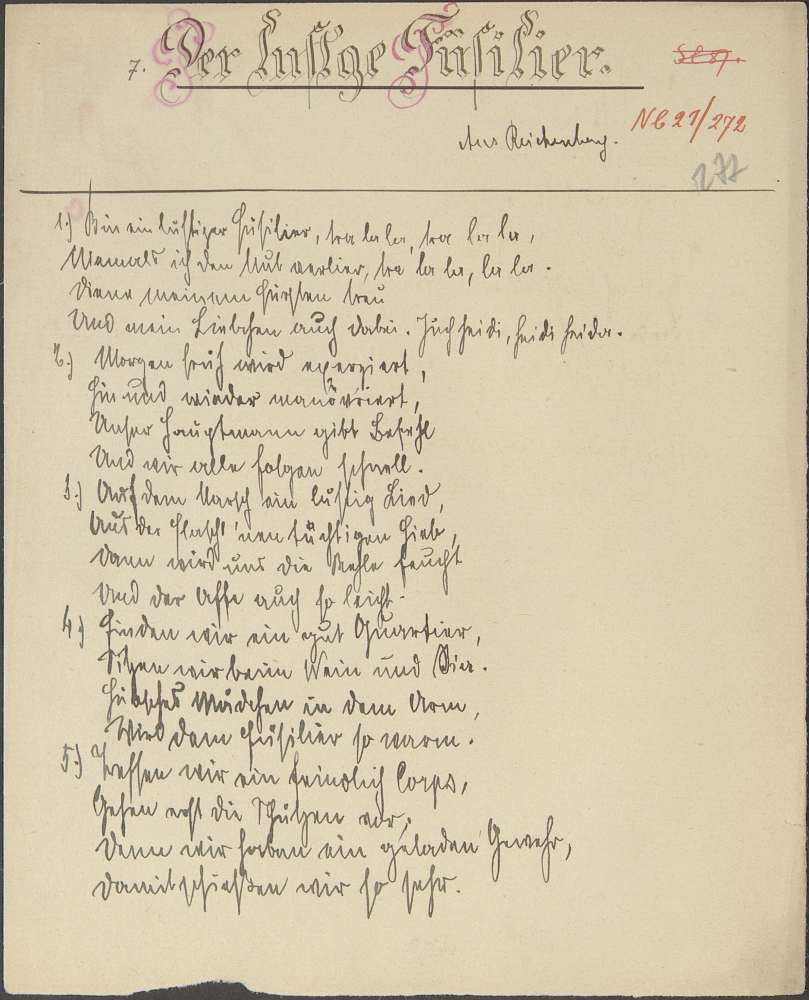 7. Der lustge Füsilier.
Aus Reichenberg.
NC 27/272
277
1.) Bin ein lustiger Füsilier, tra la la, tra la la la,
Niemals ich den Mut verlier, tra la la, la la.
Diene meinem Fürsten treu
Und mein Liebchen auch dabei. Juchheidi, heidi heida.
2.) Morgen früh wird exerziert,
Hin und wieder manövriert,
Unser Hauptmann gibt Befehl
Und wir alle folgen schnell.
3.) Auf dem Marsch ein lustig Lied,
Aus der Flasch' 'nen tüchtigen Hieb,
Dann wird uns die Kehle feucht
Und der Affe auch so leicht.
4.) Finden wir ein gut Quartier,
Sitzen wir beim Wein und Bier.
Hübsches Mädchen in dem Arm,
Wird dem Füsilier so warm.
5.) Treffen wir ein feindlich Corps,
Gehen erst die Schützen vor,
Denn wir haben ein geladen Gewehr,
Damit schießen wir so sehr.